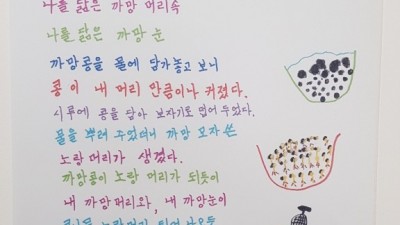 나를 닮은 까망 머리속
나를 닮은 까망 눈
까망콩을 물에 담가놓고 보니
콩이 내 머리 만큼이나 커졌다.
시루에 콩을 담아 보자기로 덮어 두었다.
물을 뿌려 주었더니 까망 모자쓴
노랑머리가 생겼다.
까망콩이 노랑 머리가 되듯이
내 까망머리와, 내 까망눈이